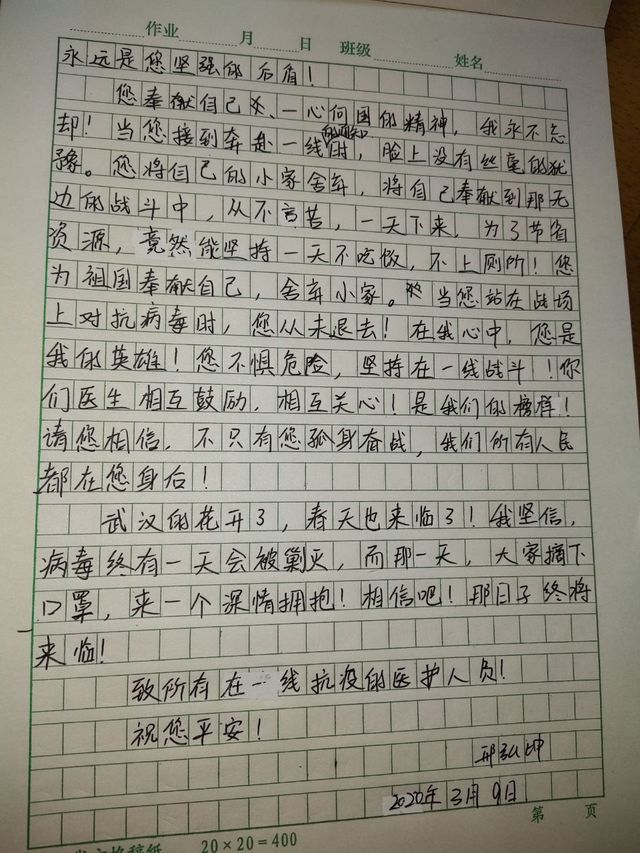 作业 月 日 班级 姓名
永远是您坚强的后盾！
您奉献自己、一心向国的精神，我永不忘
却！当您接到奔赴一线的通知时，脸上没有丝毫的犹
豫。您将自己的小家舍弃，将自己奉献到那无
边的战斗中，从不言苦，一天下来，为了节省
资源，竟然能坚持一天不吃饭，不上厕所！您
为祖国奉献自己，舍弃小家。当您站在战场
上对抗病毒时，您从未退去！在我心中，您是
我的英雄！您不惧危险，坚持在一线战斗！你
们医生相互鼓励，相互关心！是我们的榜样！
请您相信，不只有您孤身奋战，我们所有人民
都在您身后！
武汉的花开了，春天也来临了！我坚信，
病毒终有一天会被剿灭，而那一天，大家摘下
口罩，来一个深情拥抱！相信吧！那日子终将
来临！
致所有在一线抗疫的医护人员！
祝您平安！
邢弘坤
2020年3月9日
第 页
方格稿纸 20×20=400